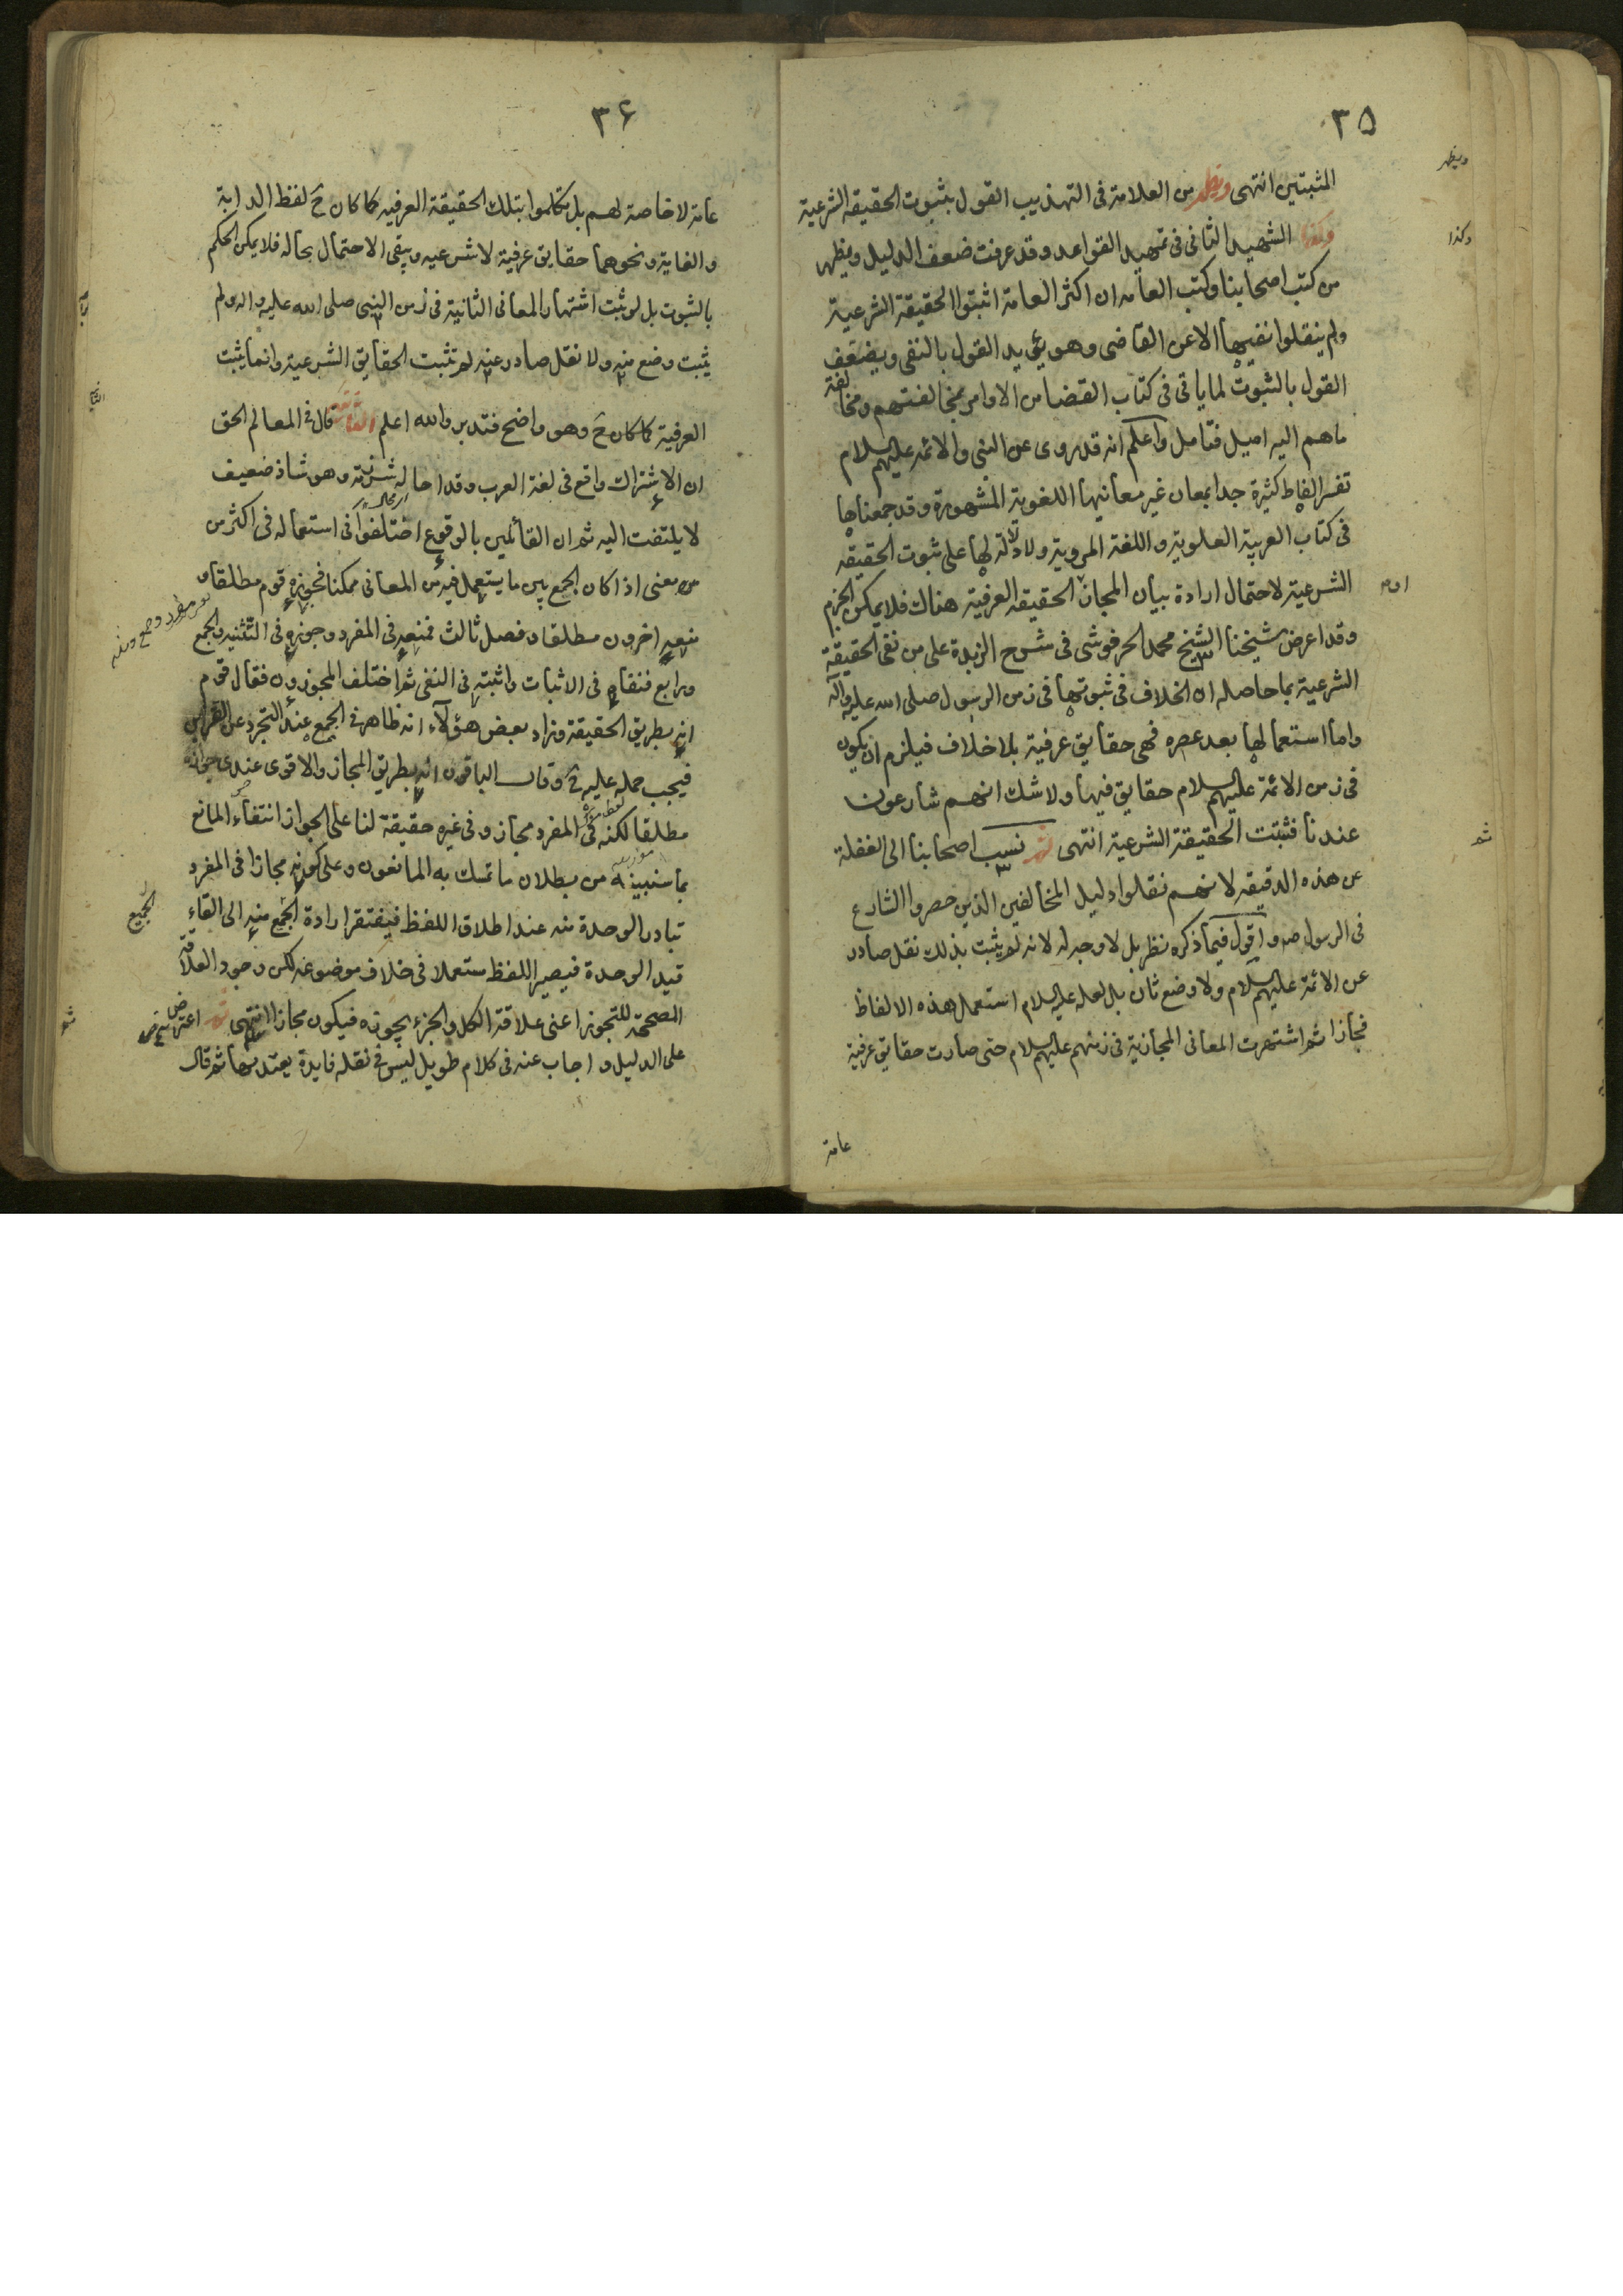 ٣٥
المثبتين انتهى ويظهر من العلامة فى التهذيب القول بثبوت الحقيقة الشرعية
ويظهر
وكذا الشهيد الثانى فى تمهيد القواعد وقد عرفت ضعف الدليل ويظهر
وكذا
من كتب اصحابنا وكتب العامه ان اكثر العامة اثبتوا الحقيقة الشرعية
ولم ينقلوا نفيها الا عن القاضى وهو يؤيد القول بالنفى ويضعف
القول بالثبوت لما ياتى فى كتاب القضا من الاوامر بمخالفتهم ومخالفة
ما هم اليه اميل فتامل واعلم انه قد روى عن النبى والائمه عليهم السلام
تفسير الفاظ كثيرة جدا بمعان غير معانيها اللغوية المشهورة وقد جمعناها
فى كتاب العربية العلوية واللغة المروية ولا دلالة لها على ثبوت الحقيقه
الشرعية لاحتمال ارادة بيان المجاز الحقيقه العرفية هناك فلا يمكن الجزم
او
وقد اعرض شيخنا الشيخ محمد الحرفوشى فى شرح الزبدة على من نفى الحقيقة
الشرعية بما حاصله ان الخلاف فى ثبوتها فى زمن الرسول صلى الله عليه وآله
واما استعمالها بعد عصره فهى حقايق عرفية بلا خلاف فيلزم ان يكون
فى زمن الائمة عليهم السلام حقايق فيها ولا شك انهم شارعون
عندنا فثبتت الحقيقة الشرعية انتهى ثم نسب اصحابنا الى الغفلة
ثم
عن هذه الدقيقه لانهم نقلوا دليل المخالفين الذين حصروا الشارع
فى الرسول ص واقول فيما ذكره نظر بل لا وجه له لانه لم يثبت بذلك نقل صادر
عن الائمة عليهم السلام ولا وضع ثان بل لعله عليه السلام استعمل هذه الالفاظ
مجازا ثم اشتهرت المعانى المجازية فى زمنهم عليهم السلام حتى صارت حقايق عرفية
عامة
٣۶
عامة لا خاصة لهم بل تكلموا بتلك الحقيقة العرفيه كما كان ح لفظ الدابة
والغاية ونحوهما حقايق عرفية لا شرعيه ويبقى الاحتمال بحاله فلا يمكن الحكم
بالثبوت بل لو ثبت اشتهار المعانى الثانية فى زمن النبى صلى الله عليه واله ولم
يثبت وضع منه ولا نقل صادر عنه لم تثبت الحقايق الشرعية وانما يثبت
العرفية كما كان ح وهو واضح فتدبر والله اعلم قال فى المعالم الحق
ان الاشتراك واقع فى لغة العرب وقد احاله شرذمة وهو شاذ ضعيف
لا يلتفت اليه ثم ان القائلين بالوقوع اختلفوا فى استعماله فى اكثر من
من معنى اذا كان الجمع بين ما يستعمل فيه من المعانى ممكنا فجوزه قوم مطلقا و
منعه اخرون مطلقا وفصل ثالث فمنعه فى المفرد وجوزه فى التثنيه والجمع
ورابع فنفاه فى الاثبات واثبته فى النفى ثم اختلف المجوزون فقال قوم
انه بطريق الحقيقة وزاد بعض هؤلآء انه ظاهر فى الجمع عند التجرد عن القراين
فيجب حمله عليه ح وقال الباقون انه بطريق المجاز والاقوى عندى جوازه
مطلقا لكنه فى المفرد مجاز وفى غيره حقيقة لنا على الجواز انتفاء المانع
بما سنبينه من بطلان ما تمسك به المانعون وعلى كونه مجازا فى المفرد
تبادر الوحدة منه عند اطلاق اللفظ فيفتقر ارادة الجمع منه الى القاء
الجميع
قيد الوحدة فيصير اللفظ مستعملا فى خلاف موضوعه لكن وجود العلاقة
المصححة للتجوز اعنى علاقة الكل والجزء يجوزه فيكون مجازا انتهى ثم اعترض
ثم
على الدليل واجاب عنه فى كلام طويل ليس فى نقله فايدة يعتد بها ثم قال